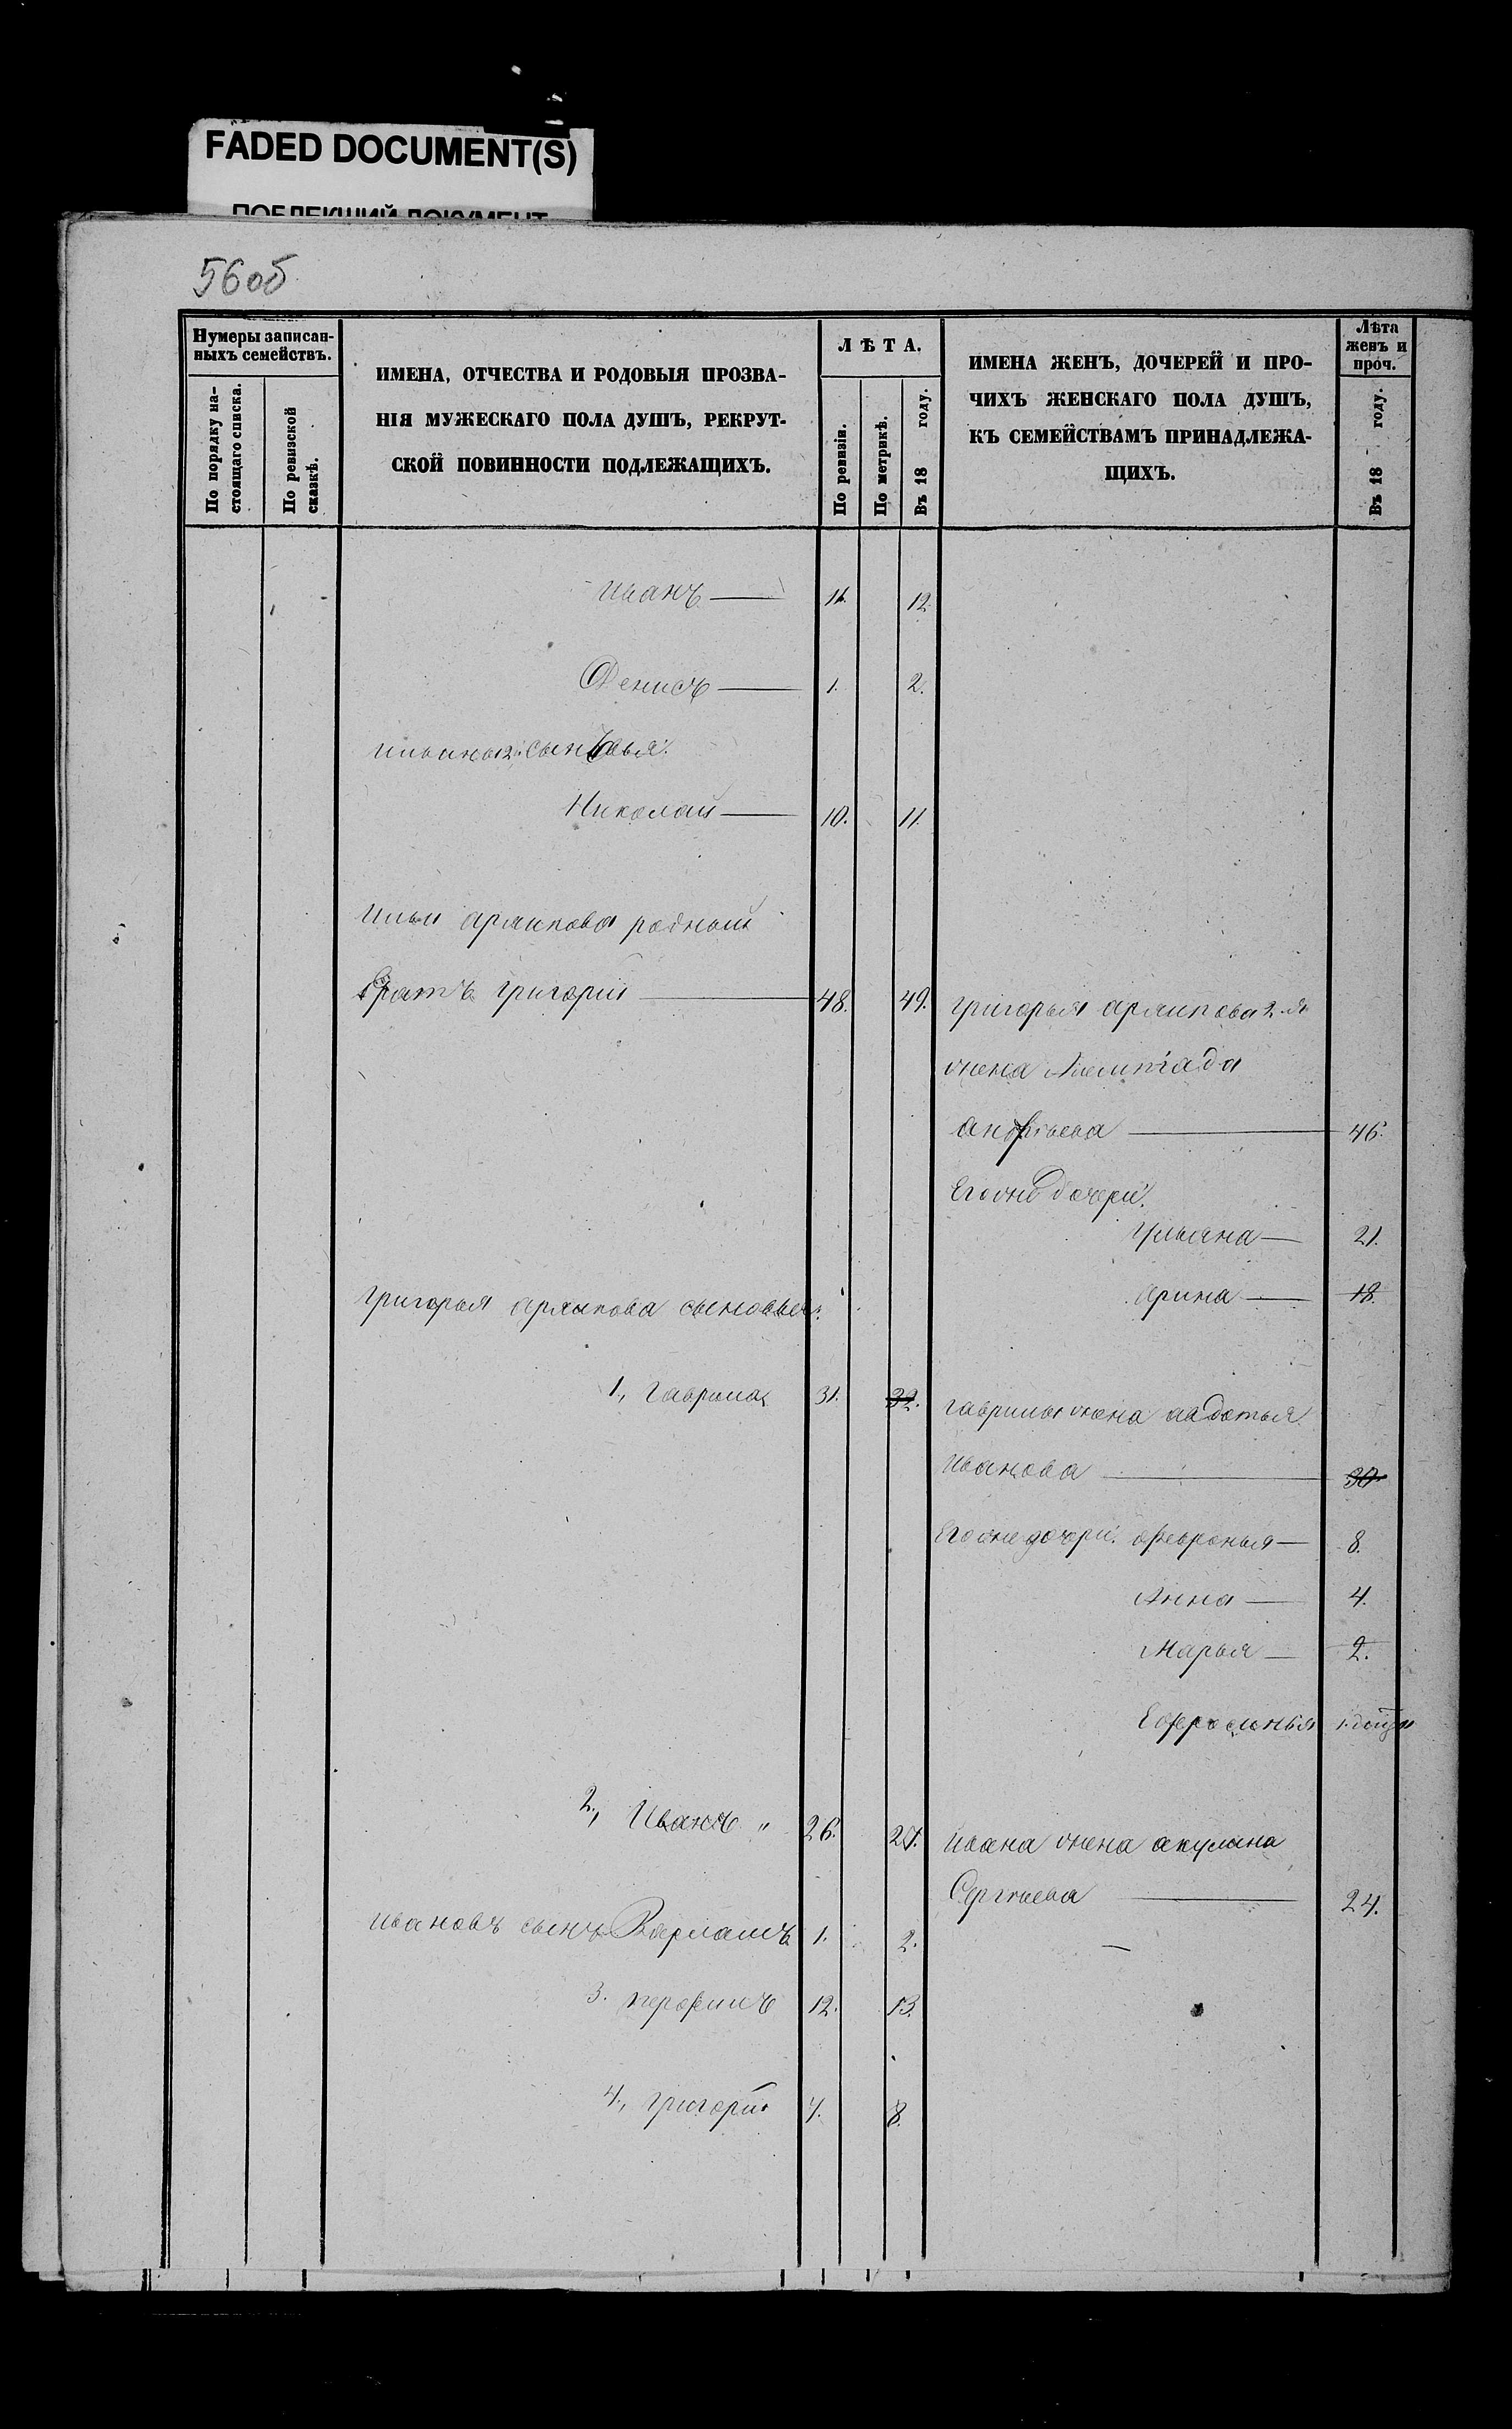 FADED DOCUMENT(S)
ПОБЛЕКШИЙ ДОКУМЕНТ
56об
Нумеры записан-
ныхъ семействъ.
По порядку на-
стоящаго списка.
По ревизской
сказкѣ.
ИМЕНА, ОТЧЕСТВА И РОДОВЫЯ ПРОЗВА-
НІЯ МУЖЕСКАГО ПОЛА ДУШЪ, РЕКРУТ-
СКОЙ ПОВИННОСТИ ПОДЛЕЖАЩИХЪ.
ЛѢТА.
По ревизіи.
По метрикѣ.
Въ 18 году.
ИМЕНА ЖЕНЪ, ДОЧЕРЕЙ И ПРО-
ЧИХЪ ЖЕНСКАГО ПОЛА ДУШЪ,
КЪ СЕМЕЙСТВАМЪ ПРИНАДЛЕЖА-
ЩИХЪ.
Лѣта
женъ и
проч.
Въ 18 году.
Иванъ — 11. 12.
Денисъ — 1. 2.
сыновья:
Николай — 10. 11.
Ильи архипова родный
братъ григорій — 48. 49. григорья архипова 2-я
жена
— 46.
Егоже дочери:
Ульяна — 21.
Григорья архипова сыновья:
арина — 18.
1., гаврила 31. 32. гаврилы жена авдотья
Иванова — 30.
Егоже дочери: февронья — 8.
Анна — 4.
Марья — 2.
Ефросинья 1.
2., Иванъ " 26. 27. Ивана жена акулина
Сергѣева — 24.
Ивановъ сынъ Варламъ 1. 2. —
3. 12. 13.
4., григорій 7. 8.